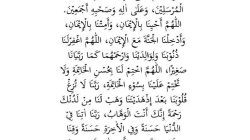 الْمُرْسَلِيْنَ، وَعَلَى آلِهِ وَصَحْبِهِ أَجْمَعِيْنَ.
اَللَّهُمَّ أَحْيِنَا بِالْإِيْمَانِ، وَأَمِتْنَا بِالْإِيْمَانِ،
وَأَدْخِلْنَا الْجَنَّةَ مَعَ الْإِيْمَانِ، اَللَّهُمَّ اغْفِرْلَنَا
ذُنُوْبَنَا وَلِوَالِدَيْنَا وَارْحَمْهُمَا كَمَا رَبَّيَانَا
صَغِيْرًا، اَللَّهُمَّ اخْتِمْ لَنَا بِحُسْنِ الْخَاتِمَةِ وَلَا
تَخْتِمْ عَلَيْنَا بِسُوْءِ الْخَاتِمَةِ، رَبَّنَا لَا تُزِغْ
قُلُوْبَنَا بَعْدَ إِذْهَدَيْتَنَا وَهَبْ لَنَا مِنْ لَدُنْكَ
رَحْمَةً إِنَّكَ أَنْتَ الْوَهَّابُ، رَبَّنَا آتِنَا فِي
الدُّنْيَا حَسَنَةً وَفِي الْآخِرَةِ حَسَنَةً وَقِنَا